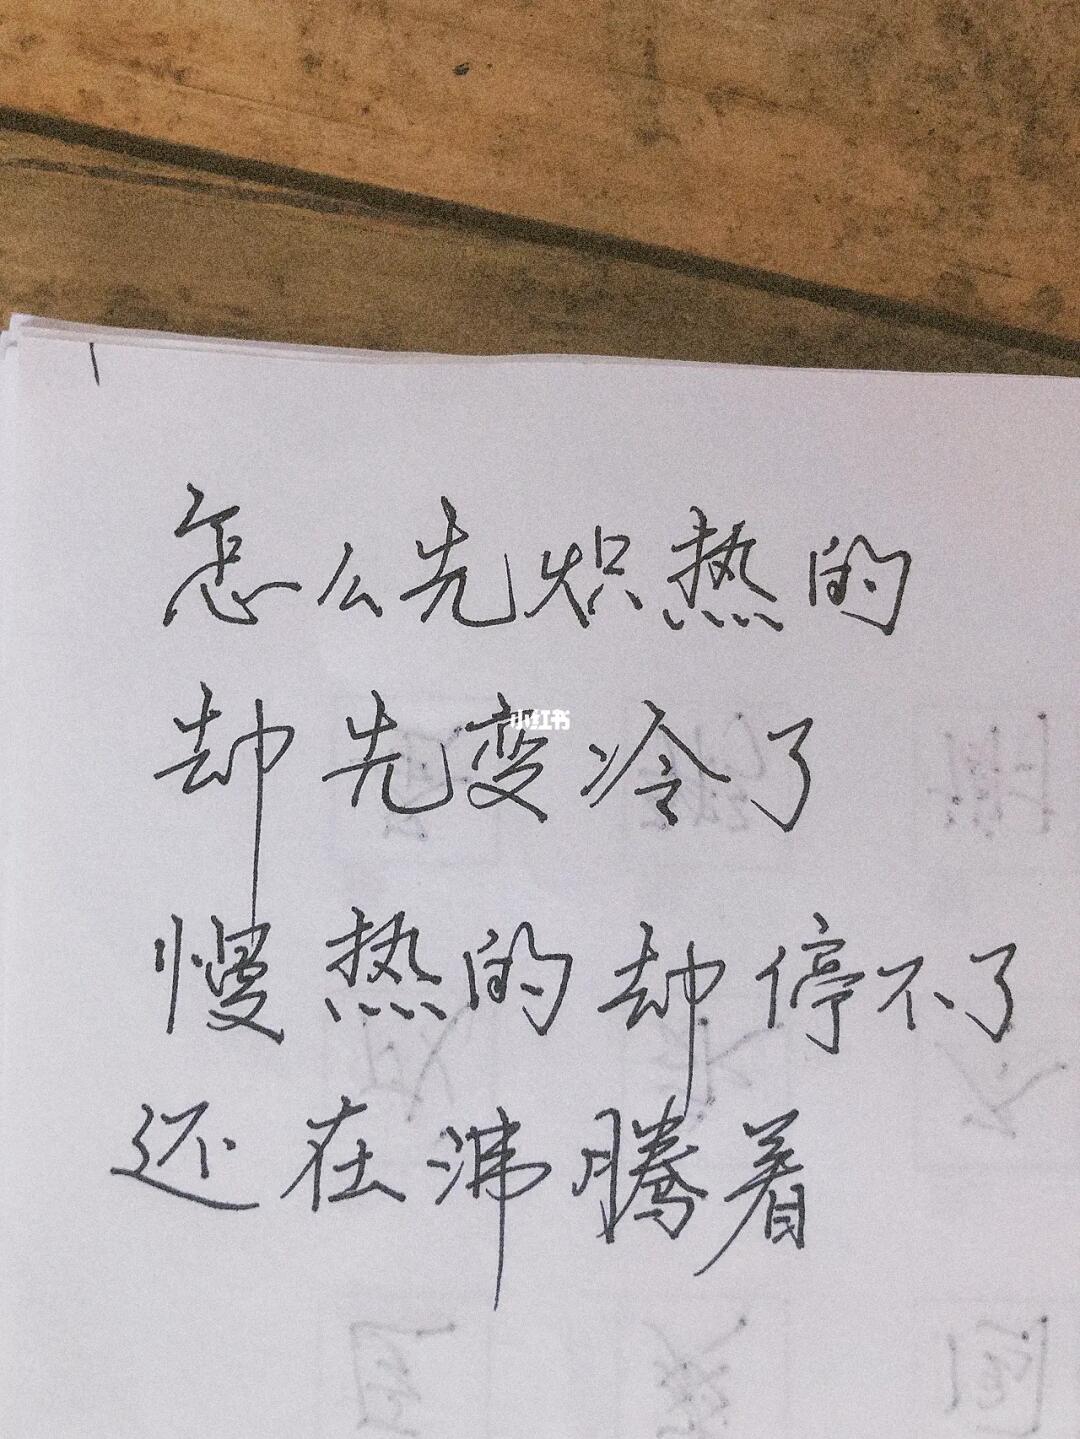 怎么先炽热的
却先变冷了
小红书
慢热的却停不了
还在沸腾着